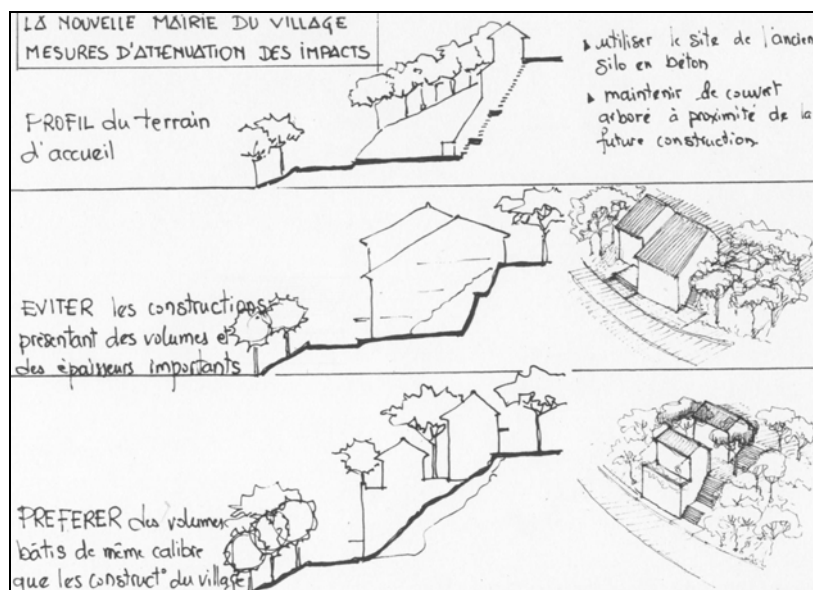 LA NOUVELLE MAIRIE DU VILLAGE
MESURES D'ATTENUATION DES IMPACTS
PROFIL du terrain
d'accueil
▸ utiliser le site de l'ancien
silo en béton
▸ maintenir le couvert
arboré à proximité de la
future construction
EVITER les constructions
présentant des volumes et
des épaisseurs importants
PREFERER des volumes
bâtis de même calibre
que les construct° du village